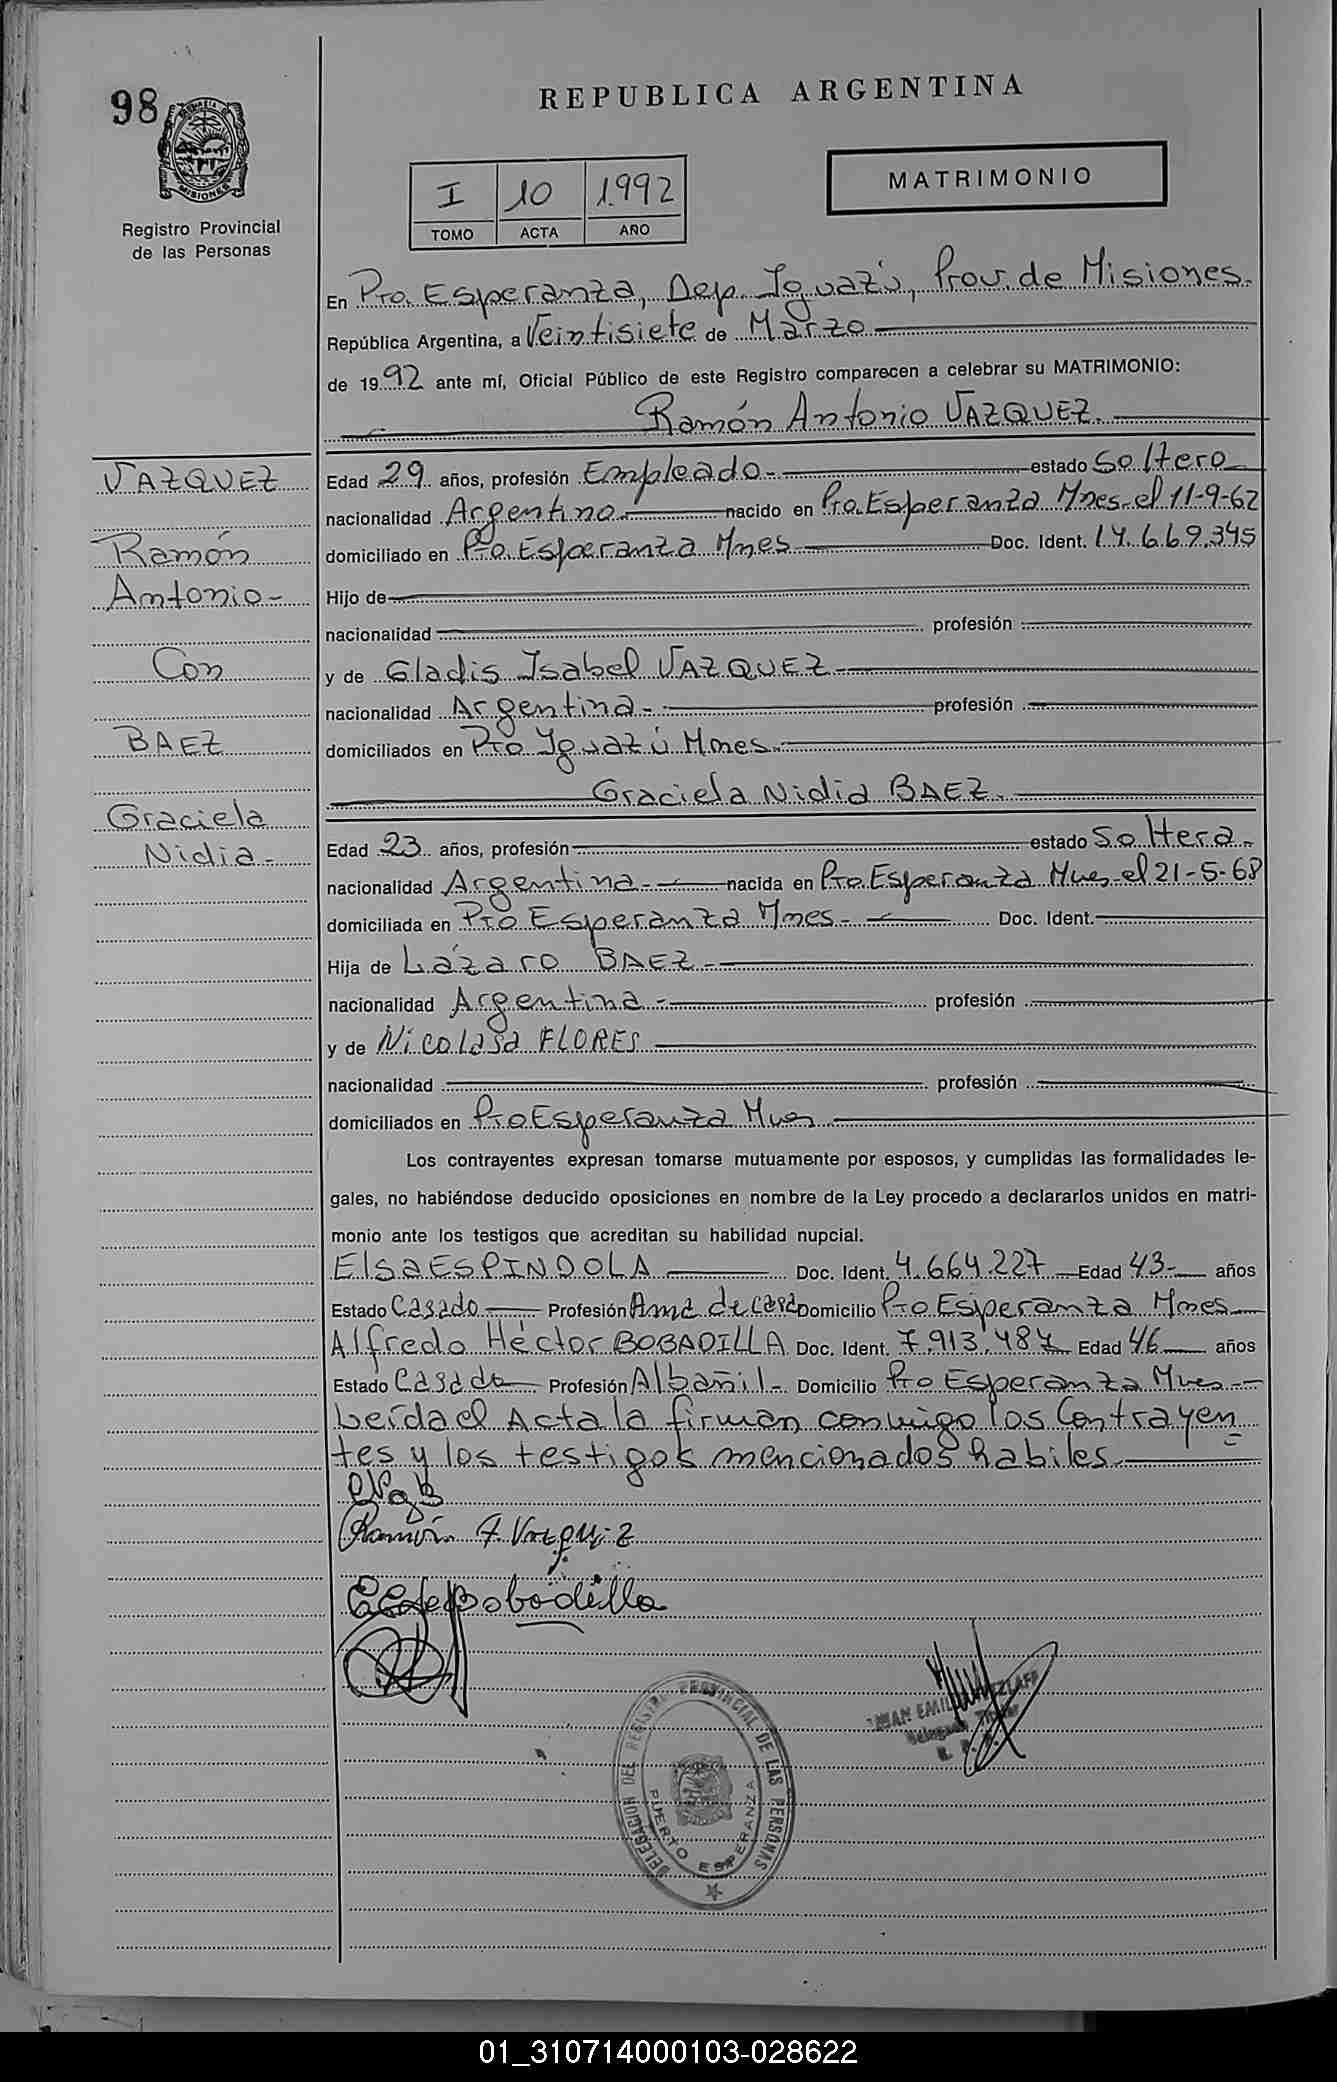 98
REPUBLICA ARGENTINA
MISIONES
Registro Provincial
de las Personas
I 10 1.992
TOMO ACTA AÑO
MATRIMONIO
En Pto. Esperanza, Dep. Iguazú, Prov. de Misiones.
República Argentina, a Veintisiete de Marzo
de 1992 ante mí, Oficial Público de este Registro comparecen a celebrar su MATRIMONIO:
Ramón Antonio VAZQUEZ.
VAZQUEZ
Ramón
Antonio-
Con
BAEZ
Graciela
Nidia-
Edad 29 años, profesión Empleado- estado Soltero
nacionalidad Argentino nacido en Pto. Esperanza Mnes. el 11-9-62
domiciliado en Pto. Esperanza Mnes Doc. Ident. 14.669.345
Hijo de
nacionalidad profesión
y de Gladis Isabel VAZQUEZ
nacionalidad Argentina- profesión
domiciliados en Pto Iguazú Mnes.
Graciela Nidia BAEZ.
Edad 23 años, profesión estado Soltera-
nacionalidad Argentina- nacida en Pto. Esperanza Mnes el 21-5-68
domiciliada en Pto Esperanza Mnes- Doc. Ident.
Hija de Lázaro BAEZ-
nacionalidad Argentina- profesión
y de Nicolasa FLORES
nacionalidad profesión
domiciliados en Pto Esperanza Mnes
Los contrayentes expresan tomarse mutuamente por esposos, y cumplidas las formalidades le-
gales, no habiéndose deducido oposiciones en nombre de la Ley procedo a declararlos unidos en matri-
monio ante los testigos que acreditan su habilidad nupcial.
Elsa ESPINDOLA Doc. Ident. 4.664.227 Edad 43- años
Estado Casado Profesión Ama de casa Domicilio Pto Esperanza Mnes
Alfredo Héctor BOBADILLA Doc. Ident. 7.913.487 Edad 46 años
Estado Casado Profesión Albañil- Domicilio Pto Esperanza Mnes-
Leída el Acta la firman conmigo los Contrayen
tes y los testigos mencionados habiles.
Ramón A Vazquez
Bobadilla
DELEGACION DEL REGISTRO PROVINCIAL DE LAS PERSONAS
PUERTO ESPERANZA
01_310714000103-028622